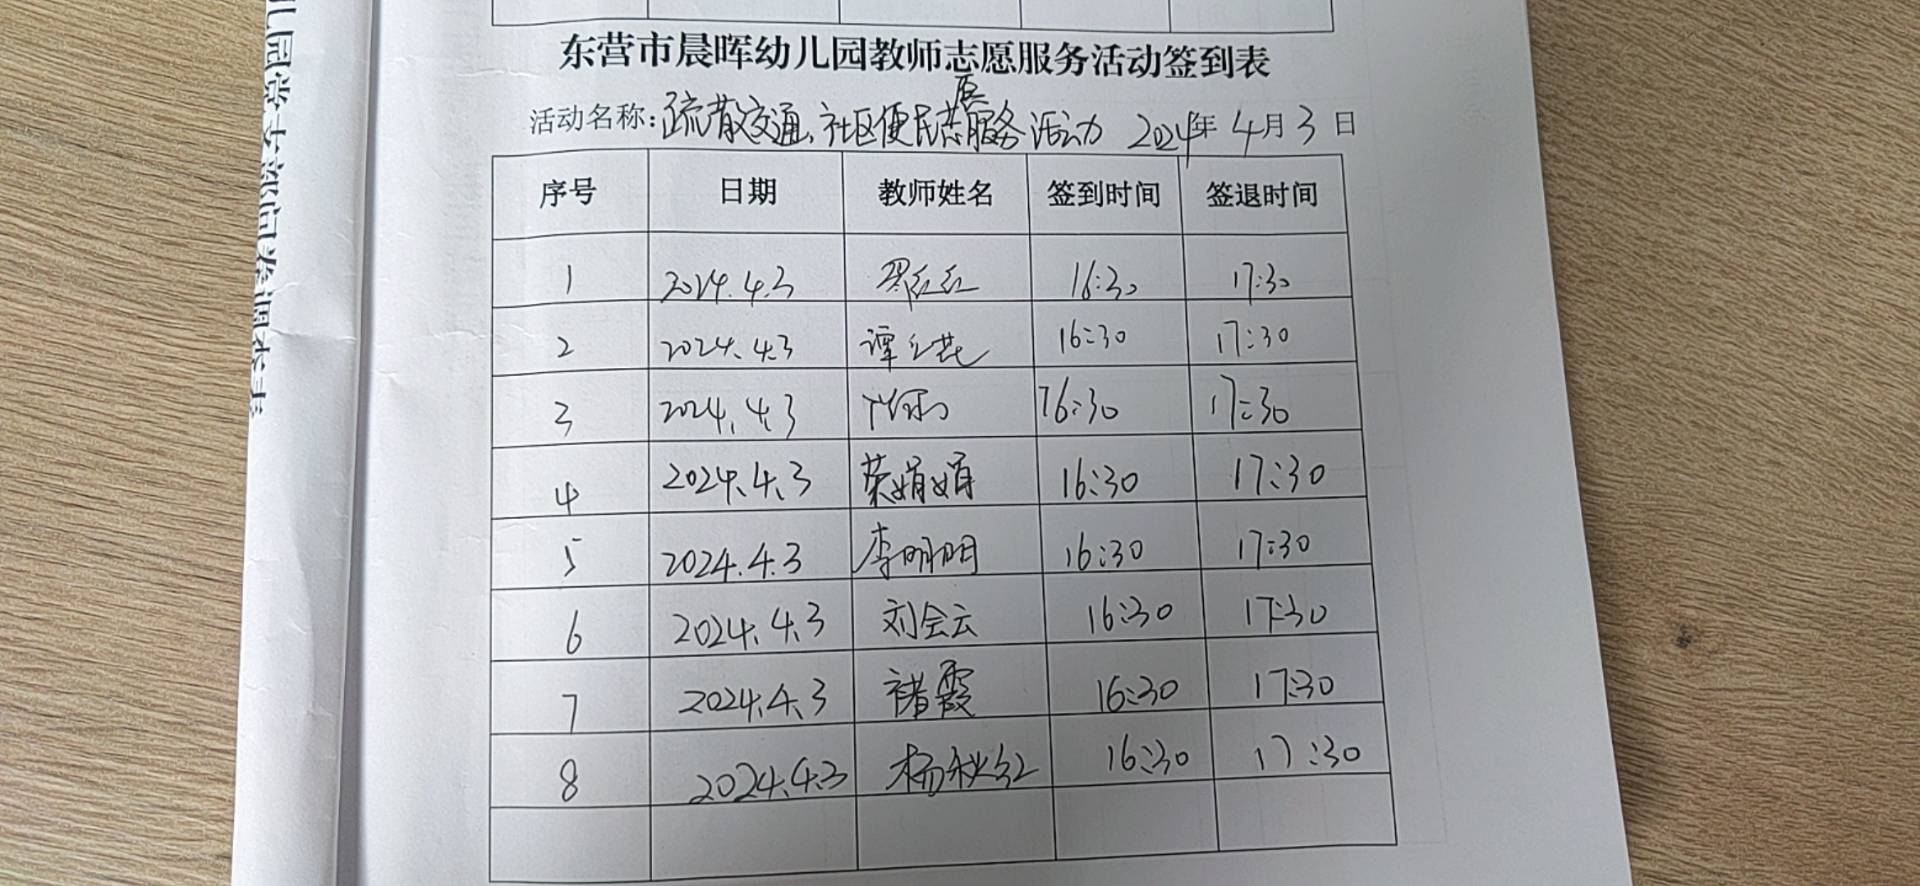 东营市晨晖幼儿园教师志愿服务活动签到表
活动名称:疏散交通、社区便民志愿服务活动 2024年4月3日
序号 日期 教师姓名 签到时间 签退时间
1 2024.4.3 邵红红 16:30 17:30
2 2024.4.3 谭 16:30 17:30
3 2024.4.3 16:30 17:30
4 2024.4.3 荣娟娟 16:30 17:30
5 2024.4.3 李明明 16:30 17:30
6 2024.4.3 刘会云 16:30 17:30
7 2024.4.3 褚霞 16:30 17:30
8 2024.4.3 杨秋红 16:30 17:30